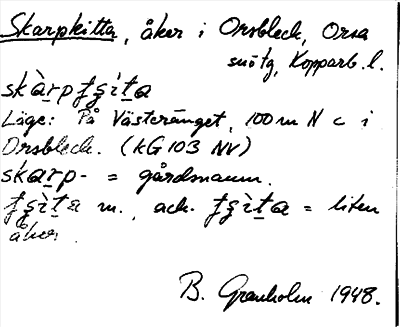 Skarpkitta, åker i Orsbleck, Orsa
snötg, Kopparb. l.
skàrpʈʂìta
Läge: På Västeränget, 100 m N c i
Orsbleck. (kG 103 NV)
skarp- = gårdsnamn.
ʈʂìta m., ack. ʈʂìta = liten
åker.
B. Granholm 1948.